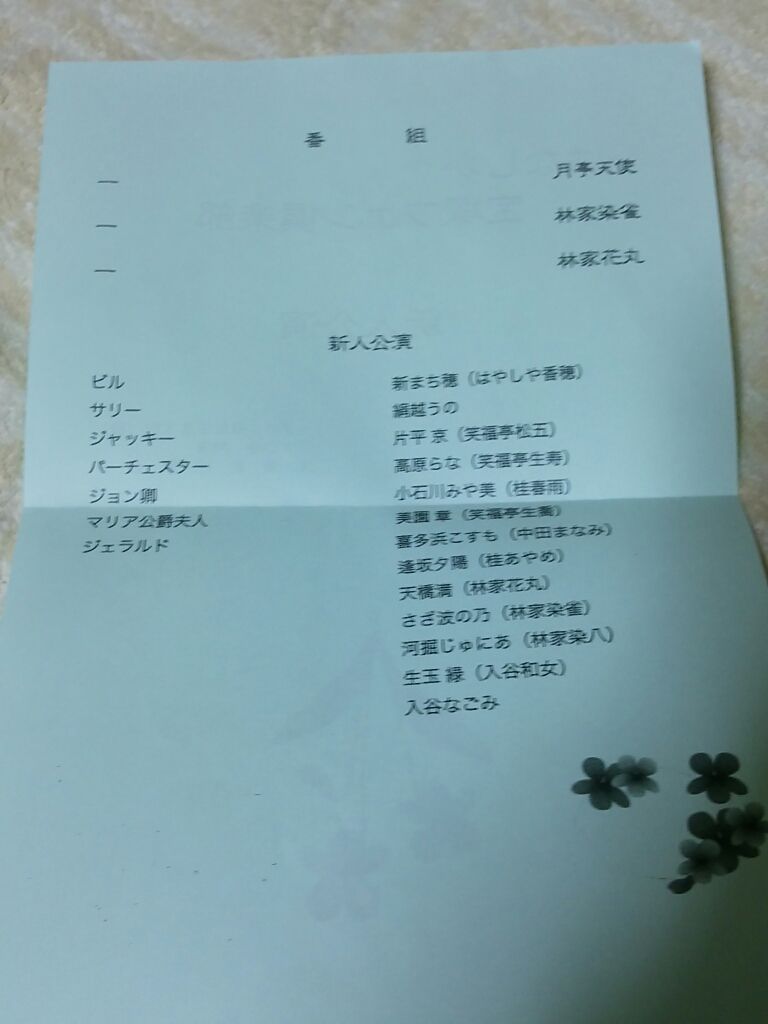 番 組
一 月亭天使
一 林家染雀
一 林家花丸
新人公演
ビル 新まち穂（はやしや香穂）
サリー 絹越うの
ジャッキー 片平 京（笑福亭松五）
パーチェスター 高原らな（笑福亭生寿）
ジョン卿 小石川みや美（桂春雨）
マリア公爵夫人 美園 華（笑福亭生喬）
ジェラルド 喜多浜こすも（中田まなみ）
逢坂夕陽（桂あやめ）
天橋満（林家花丸）
さざ波の乃（林家染雀）
河掘じゅにあ（林家染八）
生玉 緑（入谷和女）
入谷なごみ